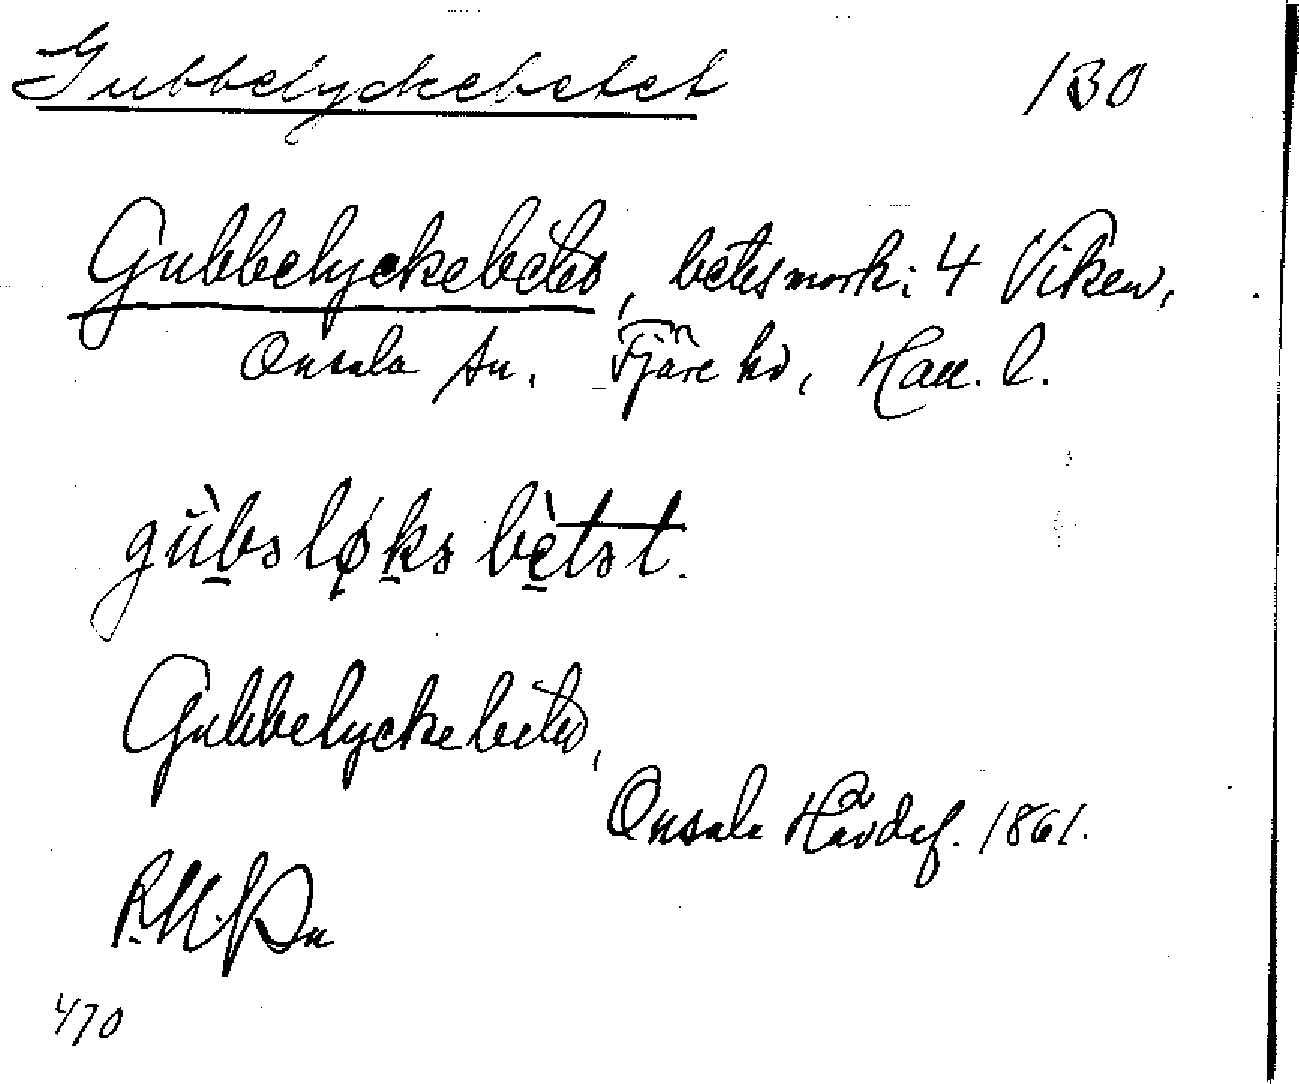 Gubbelyckebetet 130
Gubbelyckebetet, betesmark: 4 Viken,
Onsala sn. Fjäre hd, Hall. l.
gùbə løkə bètət.
Gubbelyckebetet,
Onsala Hävdef. 1861.
470